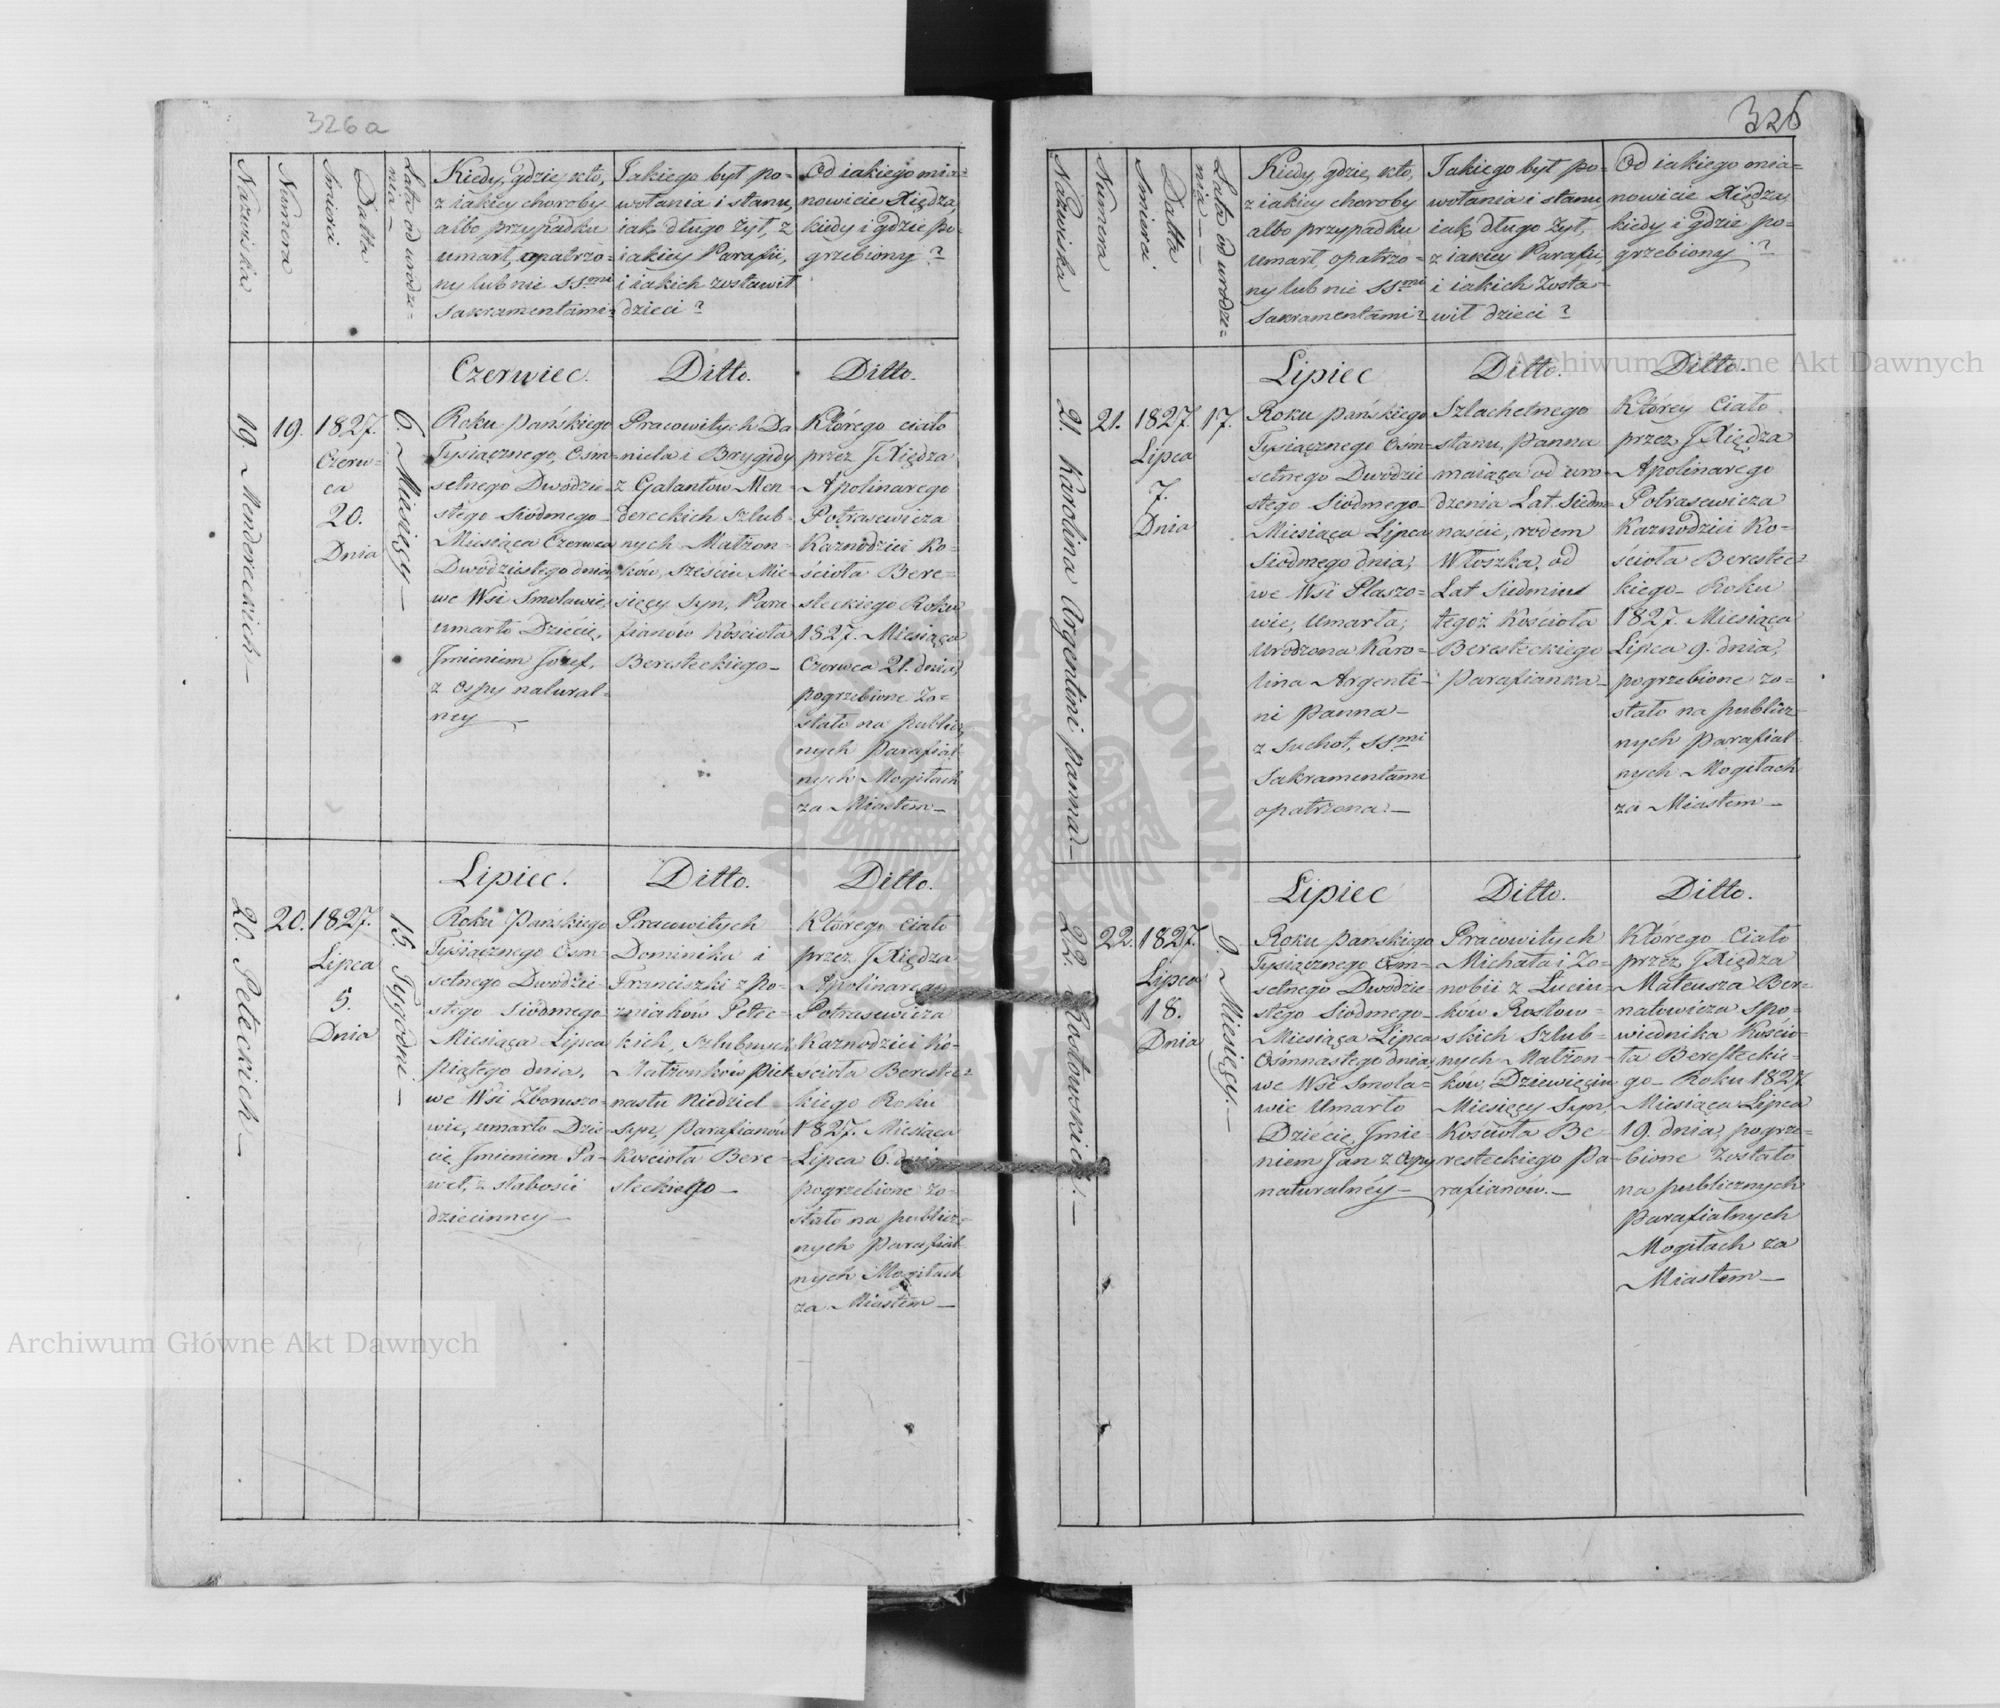 326 a
Nazwiska
Numera
Datta
Smierci
Lata od urodze=
nia —
Kiedy, gdzie, kto,
z iakiey choroby
albo przypadku
umarł, opatrzo=
ny lub nie SSmi
Sakramentami=
Jakiego był po=
wołania i stanu,
iak długo żył, z
iakiey Parafii,
i iakich zostawił
dzieci?
Od iakiego mia=
nowicie Xiędza,
kiedy i gdzie po=
grzebiony?
19. Mendereckich —
19.
1827.
Czerw=
ca
20.
Dnia
6. Miesięcy —
Czerwiec.
Roku Pańskiego
Tysiącznego, Ośm=
setnego Dwódzie=
stego Siódmego
Miesiąca Czerwca
Dwódziestego dnia,
we Wsi Smolawie,
umarło Dziécie,
Jmieniem Józef,
z Ospy natural=
ney —
Ditto.
Pracowitych Da
niela i Brygidy
z Galantow Men=
dereckich Szlub=
nych Matżon=
ków, sześciu Mie=
sięcy Syn, Para
fianów Kościoła
Beresteckiego —
Ditto.
Którego ciało
przez JXiędza
Apolinarego
Potrasewicza
Kaznodziei Ko=
ścioła Bere=
steckiego Roku
1827. Miesiąca
Czerwca 21. dnia,
pogrzebione zo=
stało na public
nych Parafial=
nych Mogiłach
za Miastem —
20. Peteckich —
20.
1827.
Lipca
5.
Dnia
15. Tygodni —
Lipiec.
Roku Pańskiego
Tysiącznego Ośm=
setnego Dwódzie=
stego Siódmego
Miesiąca Lipca
piątego dnia,
we Wsi Zboruszo=
wie, umarło Dzie=
cię Jmieniem Pa=
weł, z słabości
dziecinney —
Ditto.
Pracowitych
Dominika i
Franciszki z Po=
zniaków Petec=
kich, Szlubnych
Matżonków Piet=
nastu Niedziel
Syn, Parafianów
Kościoła Bere=
steckiego —
Ditto.
Którego Ciało
przez JXiędza
Apolinarego
Potrasewicza
Kaznodziei Ko=
ścioła Berestec=
kiego Roku
1827. Miesiąca
Lipca 6. dnia
pogrzebione zo=
stało na publicz=
nych Parafial
nych Mogiłach
za Miastem —
326
Nazwiska
Numera
Datta
Smierci
Lata od urodze=
nia —
Kiedy, gdzie, kto,
z iakiey choroby
albo przypadku
umarł, opatrzo=
ny lub nie SSmi
Sakramentami?
Jakiego był po=
wołania i stanu
iak długo żył,
z iakiey Parafii,
i iakich Zosta=
wił dzieci?
Od iakiego mia=
nowicie Xiędza,
kiedy i gdzie po=
grzebiony?
21. Karolina Argentini panna —
21.
1827.
Lipca
7.
Dnia
17.
Lipiec
Roku pańskiego
Tysiącznego Ośm=
setnego Dwódzie
stego Siódmego
Miesiąca Lipca
Siódmego dnia,
we Wsi Plaszo=
wie, umarła,
urodzona Karo=
lina Argenti=
ni Panna —
z Suchot, SSmi
Sakramentami
opatrzona. —
Ditto.
Szlachetnego
stanu, Panna
maiąca od uro=
dzenia Lat Siedm
naście, rodem
Włoszka, od
Lat Siedmiu
tegoż Kościoła
Beresteckiego
Parafianka —
Ditto.
Którey Ciało
przez JXiędza
Apolinarego
Potrasewicza
Kaznodziei Ko=
ścioła Berestec=
kiego — Roku
1827. Miesiąca
Lipca 9. dnia,
pogrzebione zo=
stało na publicz=
nych Parafial
nych Mogiłach
za Miastem —
22. Rostowskich. —
22.
1827.
Lipca
18.
Dnia
9. Miesięcy. —
Lipiec
Roku Pańskiego
Tysiącznego Ośm=
setnego Dwódzie=
stego Siódmego
Miesiąca Lipca
Ośmnastego dnia,
we Wsi Smola=
wie Umarło
Dziécie, Jmie=
niem Jan z Ospy
naturalnéy —
Ditto.
Pracowitych
Michała i Ze=
nobii z Luciu=
ków Rostow=
skich Szlub=
nych Matżon=
ków, Dziewięciu
Miesięcy Syn,
Kościoła Be
resteckiego Pa=
rafianów. —
Ditto.
Którego Ciało
przez JXiędza
Mateusza Ber=
natowicza Spo=
wiednika Kościo=
ła Beresteckie=
go — Roku 1827
Miesiąca Lipca
19. dnia, pogrze=
bione Zostało
na publicznych
Parafialnych
Mogiłach za
Miastem —
Archiwum Główne Akt Dawnych
Archiwum Główne Akt Dawnych